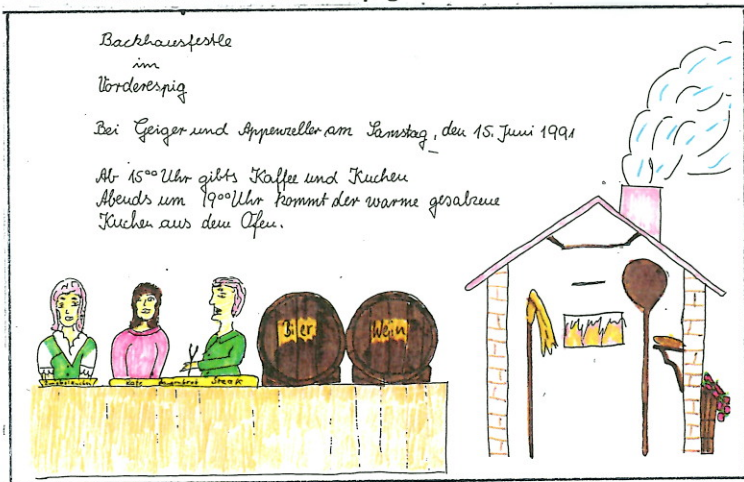 Backhausfestle
im
Vorderespig
Bei Geiger und Appenzeller am Samstag, den 15. Juni 1991
Ab 15⁰⁰ Uhr gibts Kaffee und Kuchen
Abends um 19⁰⁰ Uhr kommt der warme gesalzene
Kuchen aus dem Ofen.
Bier
Wein
Zwiebelkuchen
Steak